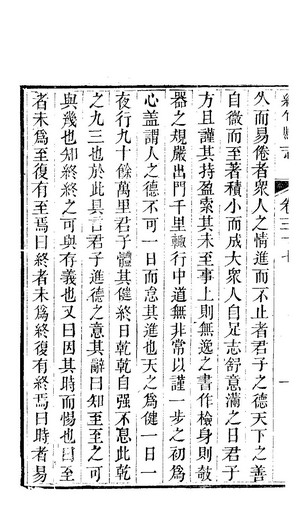 綿竹縣志 卷三十七
久而易倦者衆人之情進而不止者君子之德天下之善
自微而至著積小而成大衆人自足志舒意滿之日君子
方且謹其持盈索其未至事上則無逸之書作檢身則欹
器之規嚴出門千里輙行中道無非常以謹一步之初爲
心蓋謂人之德不可一日而怠其進也天之爲健一日一
夜行九十餘萬里君子體其健終日乾乾自强不息此乾
之九三也於此具言君子進德之意其辭曰知至至之可
與幾也知終終之可與存義也又曰因其時而惕也曰至
者未爲至復有至焉曰終者未爲終復有終焉曰時者易